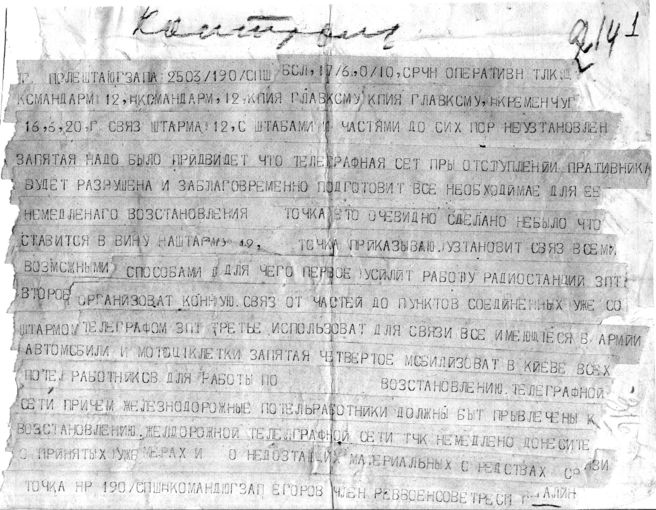 Контроль
2141
ПОЛЕШТАЮГЗАПА 2503/190/СПШ БСЛ, 17/6, 0/10, СРЧН ОПЕРАТИВН ТЛК
КСМАНДАРМ 12, НКСМАНДАРМ, 12, КПИЯ ГЛАВКСМУ КПИЯ ГЛАВКСМУ, НКРЕМЕНЧУГ
16,6,20,Г. СВЯЗ ШТАРМА 12, С ШТАБАМИ И ЧАСТЯМИ ДО СИХ ПСР НЕУЗТАНОВЛЕН
ЗАПЯТАЯ НАДО БЫЛО ПРИДВИДЕТ ЧТО ТЕЛЕГРАФНАЯ СЕТ ПРЫ ОТСТУПЛЕНИИ ПРАТИВНИКА
БУДЕТ РАЗРУШЕНА И ЗАБЛАГОВРЕМЕННО ПОДГОТОВИТ ВСЕ НЕОБХОДИМАЕ ДЛЯ ЕЕ
НЕМЕДЛЕНАГО ВОЗСТАНОВЛЕНИЯ ТОЧКА ЭТО ОЧЕВИДНО СДЕЛАНО НЕБЫЛО ЧТО
СТАВИТСЯ В ВИНУ НАШТАРМУ 12, ТОЧКА ПРИКАЗЫВАЮ УЗТАНОВИТ СВЯЗ ВСЕМИ
ВОЗМСЖНЫМИ СПОСОБАМИ ДЛЯ ЧЕГО ПЕРВОЕ УСИЛИТ РАБОТУ РАДИОСТАНЦИЙ ЗПТ
ВТОРОЕ ОРГАНИЗОВАТ КОННУЮ СВЯЗ ОТ ЧАСТЕЙ ДО ПУНКТОВ СОЕДИНЕННЫХ УЖЕ СО
ШТАРМОМ ТЕЛЕГРАФОМ ЗПТ ТРЕТЬЕ ИСПОЛЬЗОВАТ ДЛЯ СВЯЗИ ВСЕ ИМЕЮЩИЕСЯ В АРМИИ
АВТОМСБИЛИ И МОТОЦИКЛЕТКИ ЗАПЯТАЯ ЧЕТВЕРТОЕ МСБИЛИЗОВАТ В КИЕВЕ ВСЕХ
ПОТЕЛ РАБОТНИКСВ ДЛЯ РАБОТЫ ПО ВОЗСТАНОВЛЕНИЮ ТЕЛЕГРАФНОЙ
СЕТИ ПРИЧЕМ ЖЕЛЕЗНОДОРОЖНЫЕ ПОТЕЛЬРАБОТНИКИ ДОЛЖНЫ БЫТ ПРЫВЛЕЧЕНЫ К
ВОЗСТАНОВЛЕНИЮ ЖЕЛДОРОЖНОЙ ТЕЛЕГРАФНОЙ СЕТИ ТЧК НЕМЕДЛЕНО ДОНЕСИТЕ
О ПРИНЯТЫХ УЖЕ МЕРАХ И О НЕДОЗТАЩИХ МАТЕРИАЛЬНЫХ СРЕДСТВАХ СВЯЗИ
ТОЧКА НР 190/СПШ НКОМАНДЮГЗАП ЕГОРОВ ЧЛЕН РЕВВОЕНСОВЕТРЕСП СТАЛИН